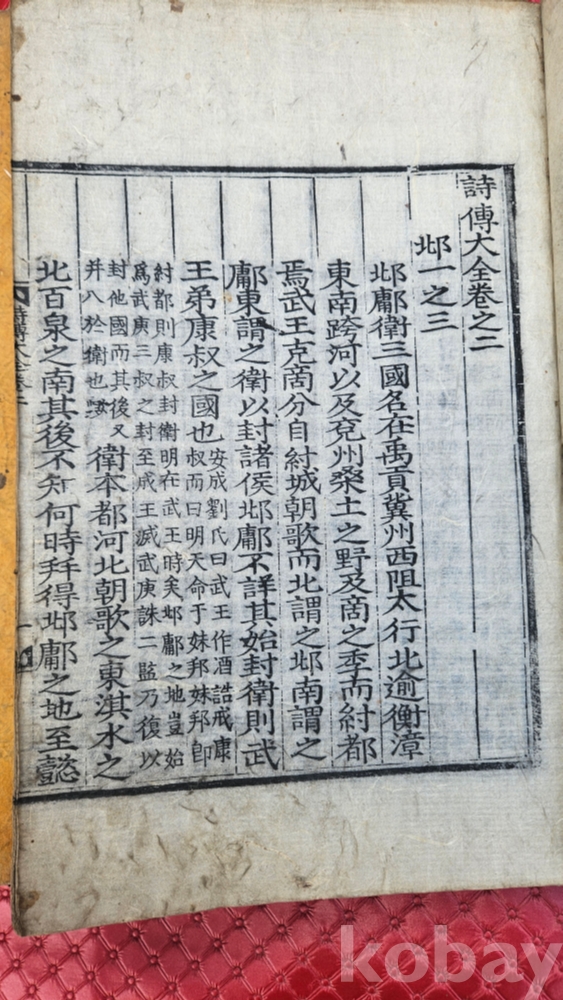 詩傳大全卷之二
邶一之三
邶鄘衛三國名在禹貢冀州西阻太行北逾衡漳
東南跨河以及兗州桑土之野及商之季而紂都
焉武王克商分自紂城朝歌而北謂之邶南謂之
鄘東謂之衛以封諸侯邶鄘不詳其始封衛則武
王弟康叔之國也
安成劉氏曰武王作酒誥戒康
叔而曰明天命于妹邦妹邦卽
紂都則康叔封衛明在武王時矣邶鄘之地豈始
爲武庚三叔之封至成王滅武庚誅二監乃復以
封他國而其後又
幷入於衛也歟
衛本都河北朝歌之東淇水之
北百泉之南其後不知何時幷得邶鄘之地至懿
kobay